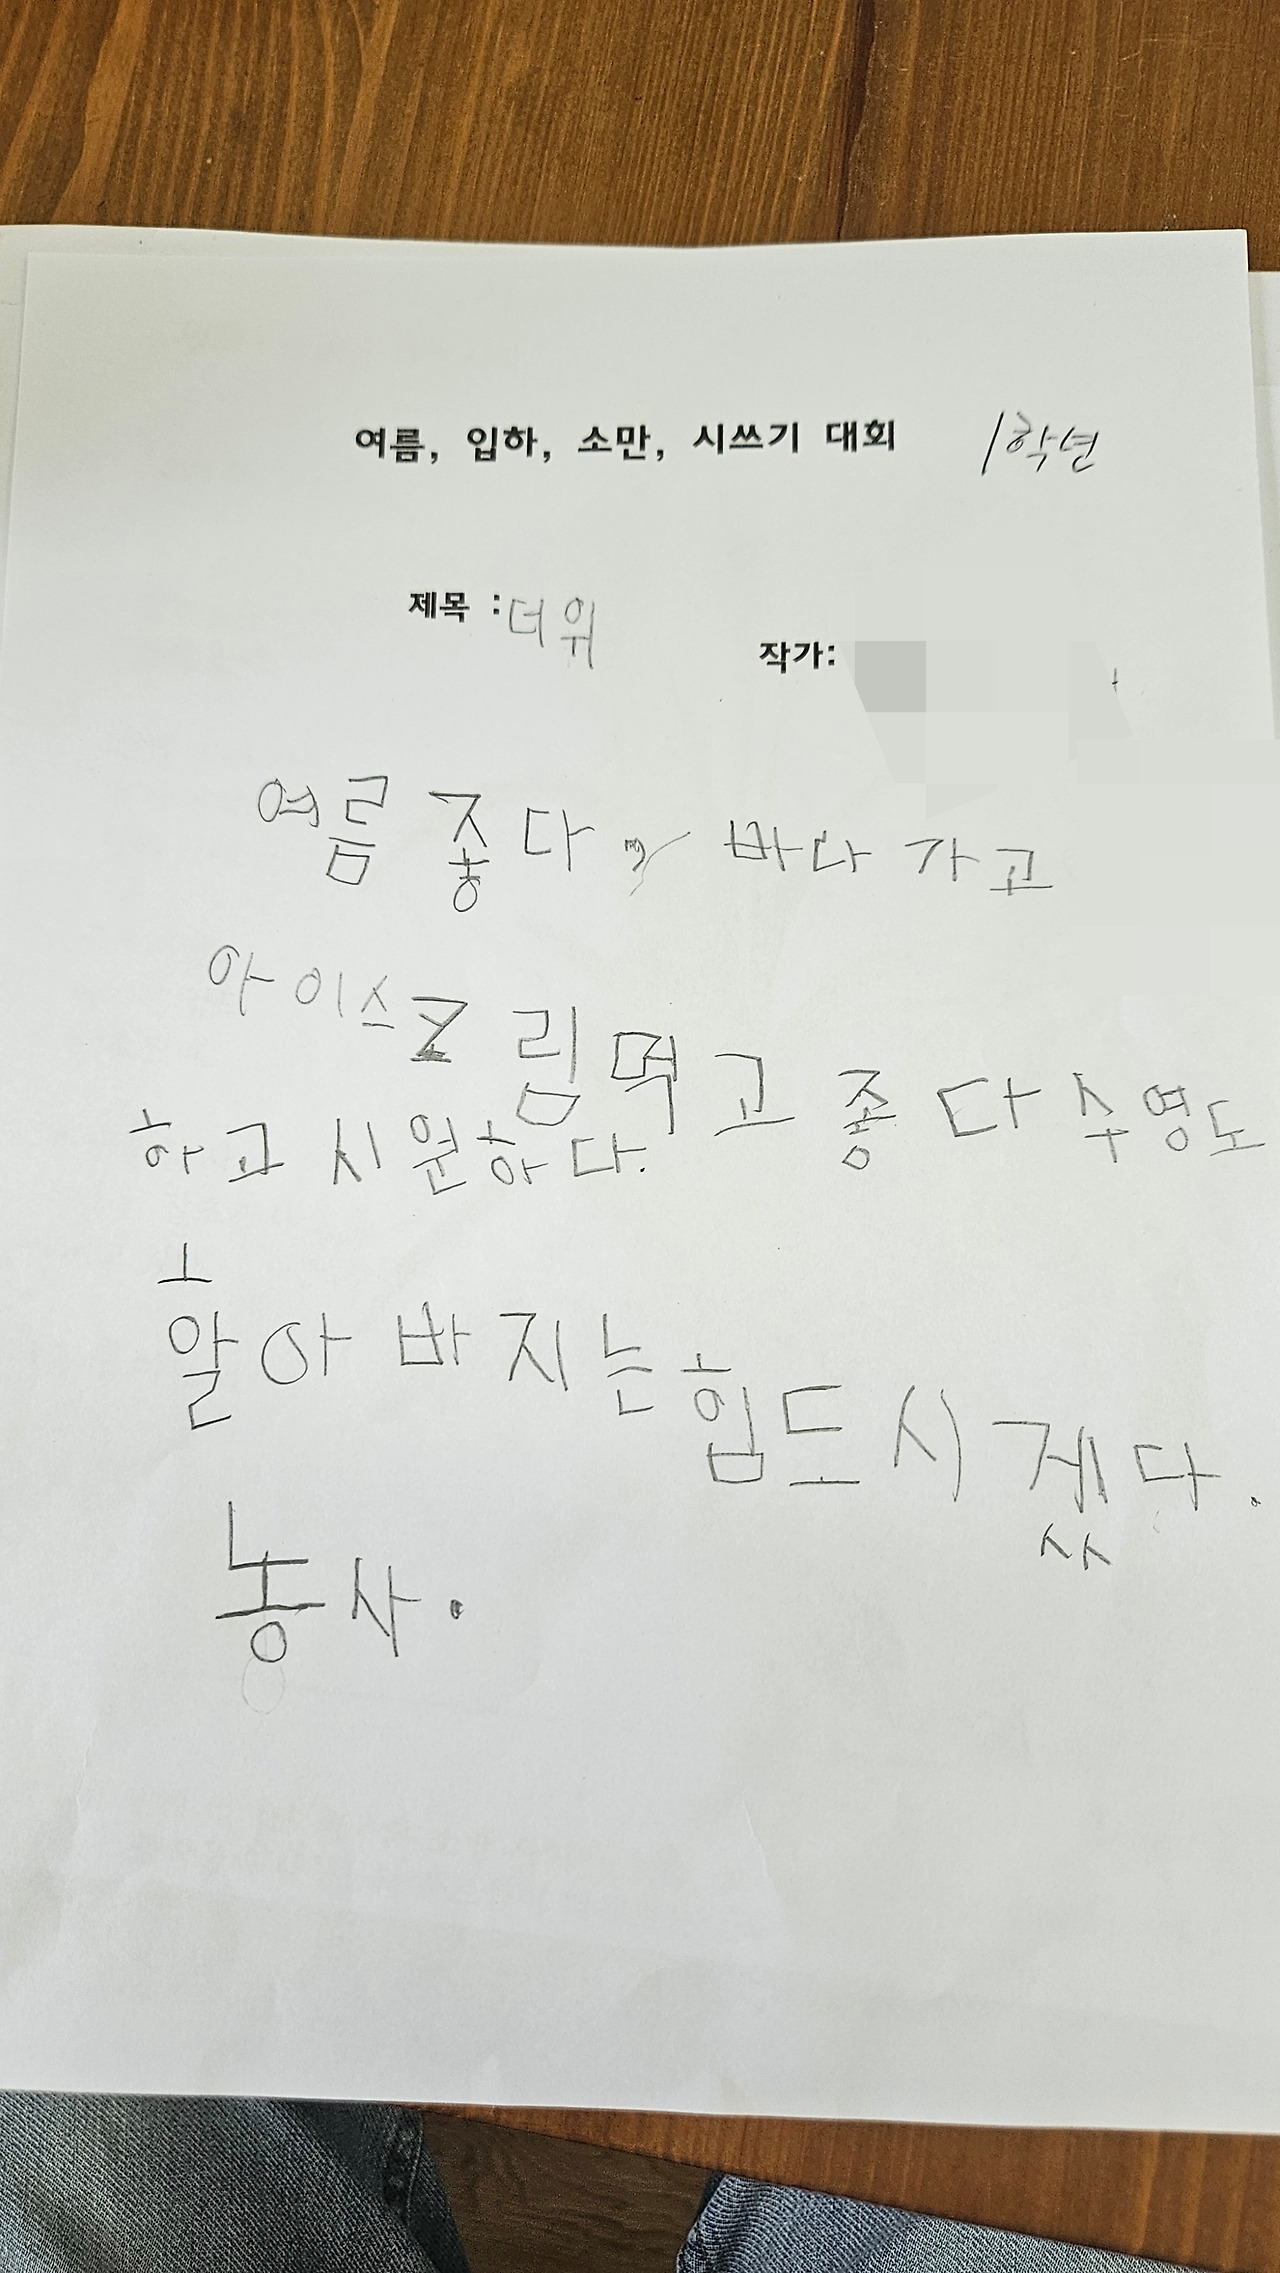 여름, 입하, 소만, 시쓰기 대회 1학년
제목 : 더위
작가:
여름 좋다, 바다 가고
아이스크림 먹고 좋다 수영도
하고 시원하다.
할아바지는 힘도시겠다.
농사.